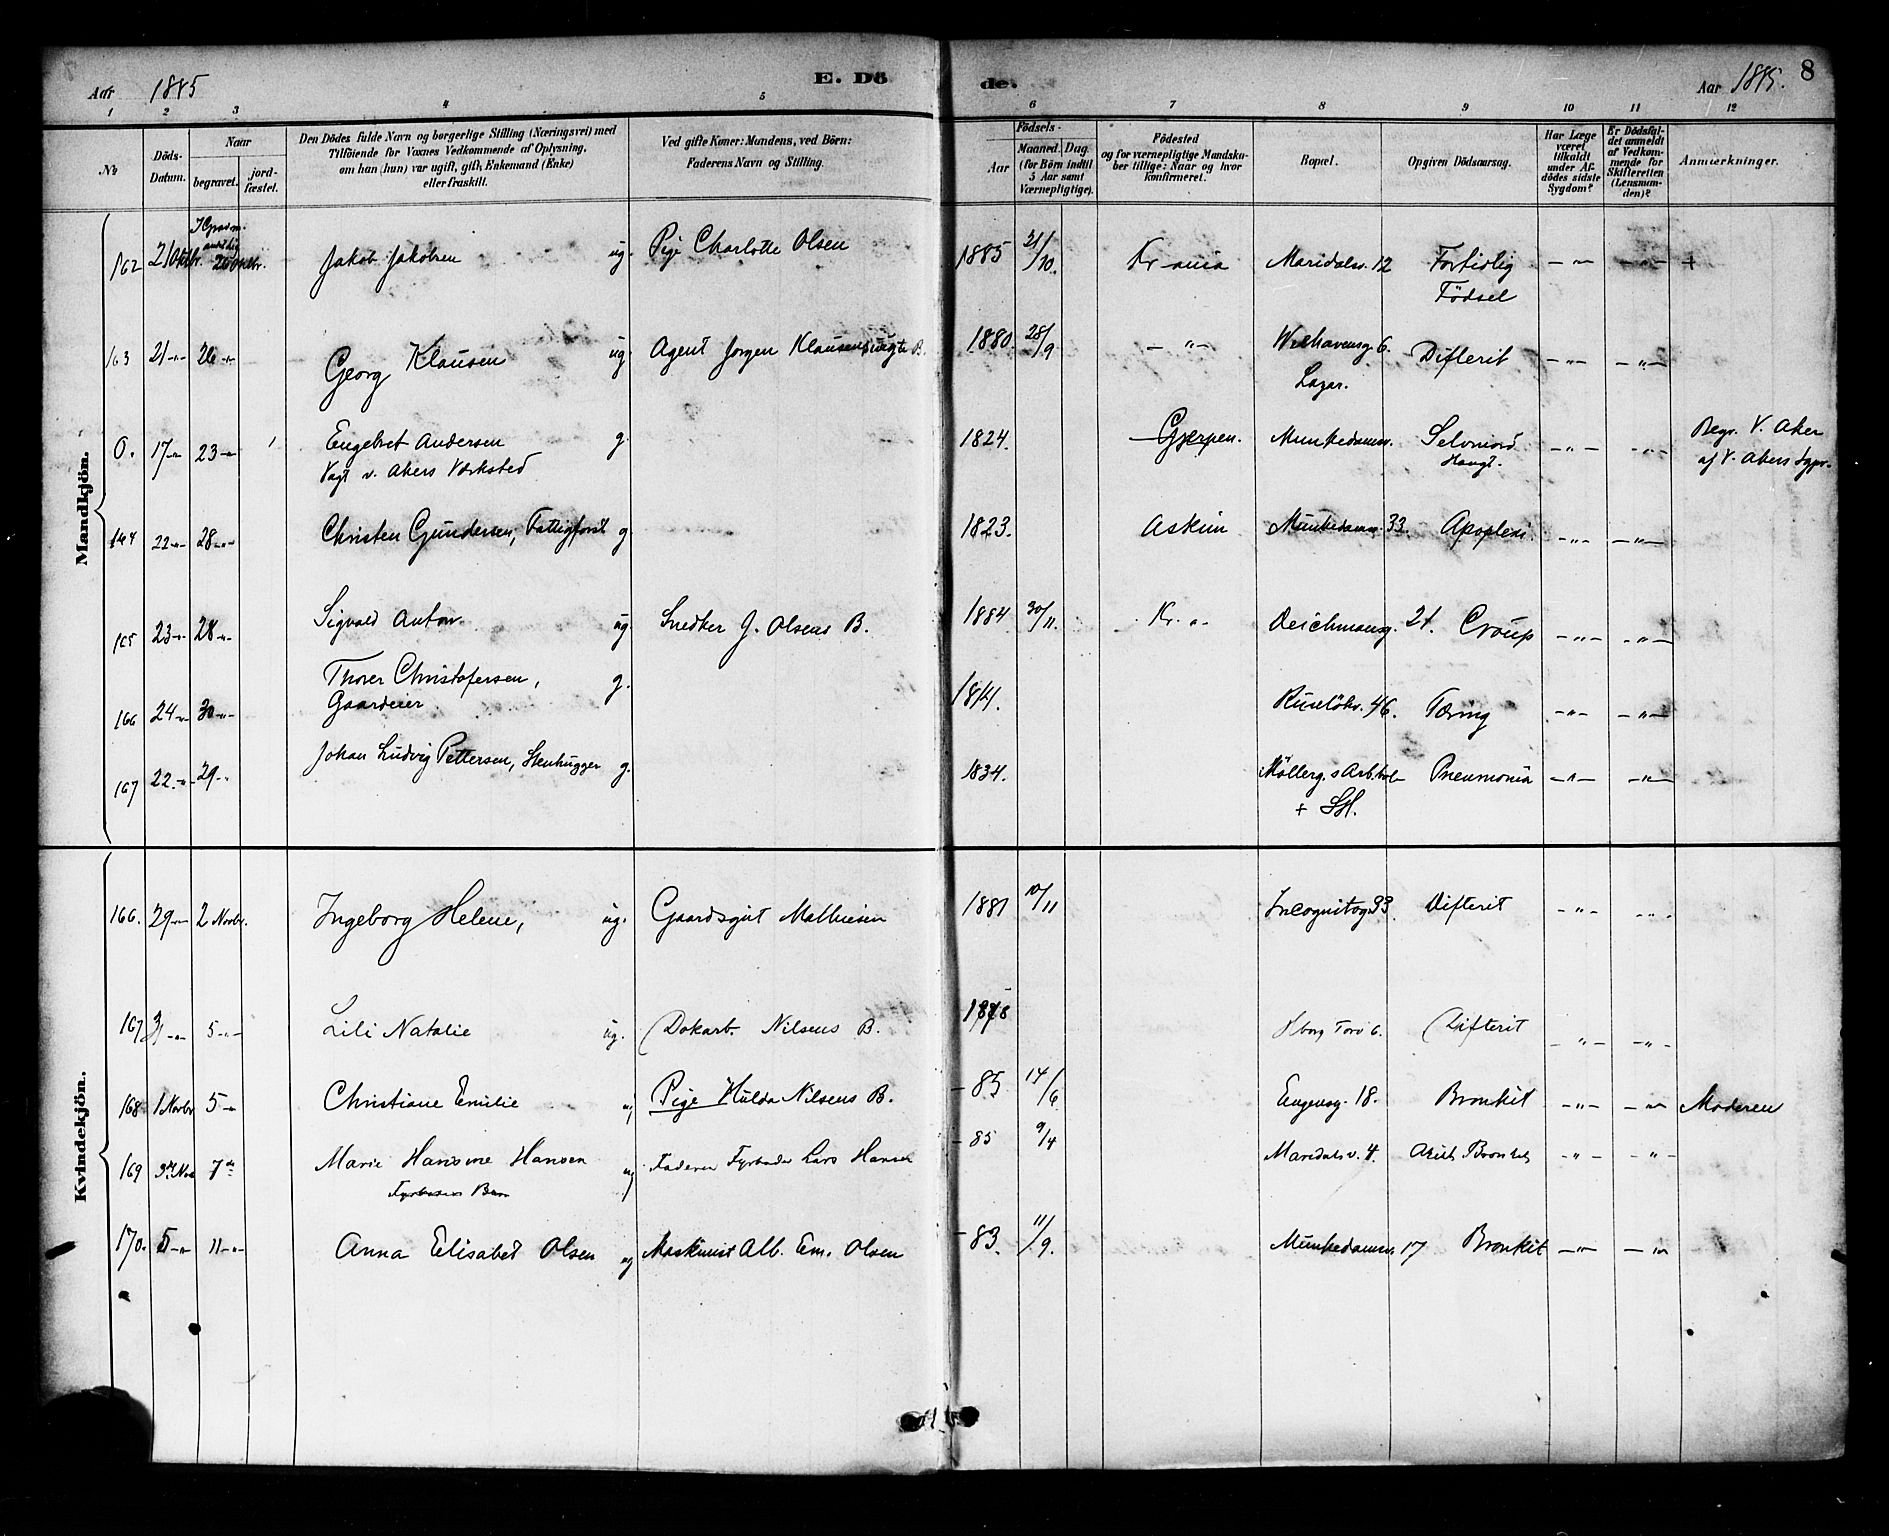 Aar 1885 E. Dö de. Aar 1885. 8
1 2 3 4 5 6 7 8 9 10 11 12
No
Döds-Datum.
Naar
begravet.
jord-fæstet.
Den Dödes fulde Navn og borgerlige Stilling (Næringsvei) med
Tilföiende for Voxnes Vedkommende af Oplysning,
om han (hun) var ugift, gift, Enkemand (Enke)
eller fraskilt.
Ved gifte Koner: Mandens, ved Börn:
Faderens Navn og Stilling.
Födsels-
Aar
Maaned. Dag.
(for Börn indtil
5 Aar samt
Værnepligtige).
Födested
og for værnepligtige Mandska-
ber tillige: Naar og hvor
konfirmeret.
Bopæl.
Opgiven Dödsaarsag.
Har Læge
været
tilkaldt
under Af-
dödes sidste
Sygdom?
Er Dödsfal-
det anmeldt
af Vedkom-
mende for
Skifteretten
(Lensman-
den)?
Anmærkninger.
Mandkjön.
162 21 Oktbr. 26 Oktbr. Jakob Jakobsen ug. Pige Charlotte Olsen 1885 21/10. Kr-ania Maridalsv. 12 Fortidlig — " — — " — +
Födsel
163 21 -"- 26 -"- Georg Klausen ug. Agent Jörgen Klausens B. 1880. 28/9 — " — Welhavensg. 6. Difterit — " — — " —
Lazar.
0. 17 -"- 23 -"- Engebret Andersen g. 1824. Gjerpen. Munkedamsv. Selvmord — " — — " — Begr. V. Aker
Vagt v. Akers Værksted Hængt. af V. Akers Sgpr.
164 22 -"- 28 -"- Christen Gundersen, Fattigforst. g. 1823. Askim Munkedamsv. 33. Apoplexi. — " — — " —
165 23 -"- 28 -"- Sigvald Anton ug. Snedker J. Olsens B. 1884 30/11. Kr. a. Deichmansg. 21. Croup — " — — " —
166 24 -"- 30 -"- Thorer Christofersen, g. 1814. Ruselökv. 46. Tæring — " — — " —
Gaardeier
167 22 -"- 29 -"- Johan Ludvig Pettersen, Stenhugger g. 1834. Mölberg. s Arb. bol. Pneumonia — " — — " —
Kvindekjön.
166. 29 -"- 2 Novbr. Ingeborg Helene, ug. Gaardsgut Mathiesen 1881 10/11 Incognitog. 33. Difterit — " — — " —
167 31 -"- 5 -"- Lili Natalie ug. Dokarb. Nilsens B. 1878 Yborg Torv 6. Difterit — " — — " —
168 1 Novbr 5 -"- Christiane Emilie ug Pige Hulda Nilsens B. — 85 14/6. Eugensg. 18. Bronkit — " — — " — Moderen
169 3die Nov 7de Marie Hansine Hansen ug Faderen Fyrböder Lars Hansen — 85 9/4 Maridalsv. 4. Akut Bronkit — " — — " —
Fyrböders Barn
170. 5 -"- 11 -"- Anna Elisabet Olsen ug Maskinist Alb. Em. Olsen — 83. 11/9. Munkedamsv. 17 Bronkit — " — — " —